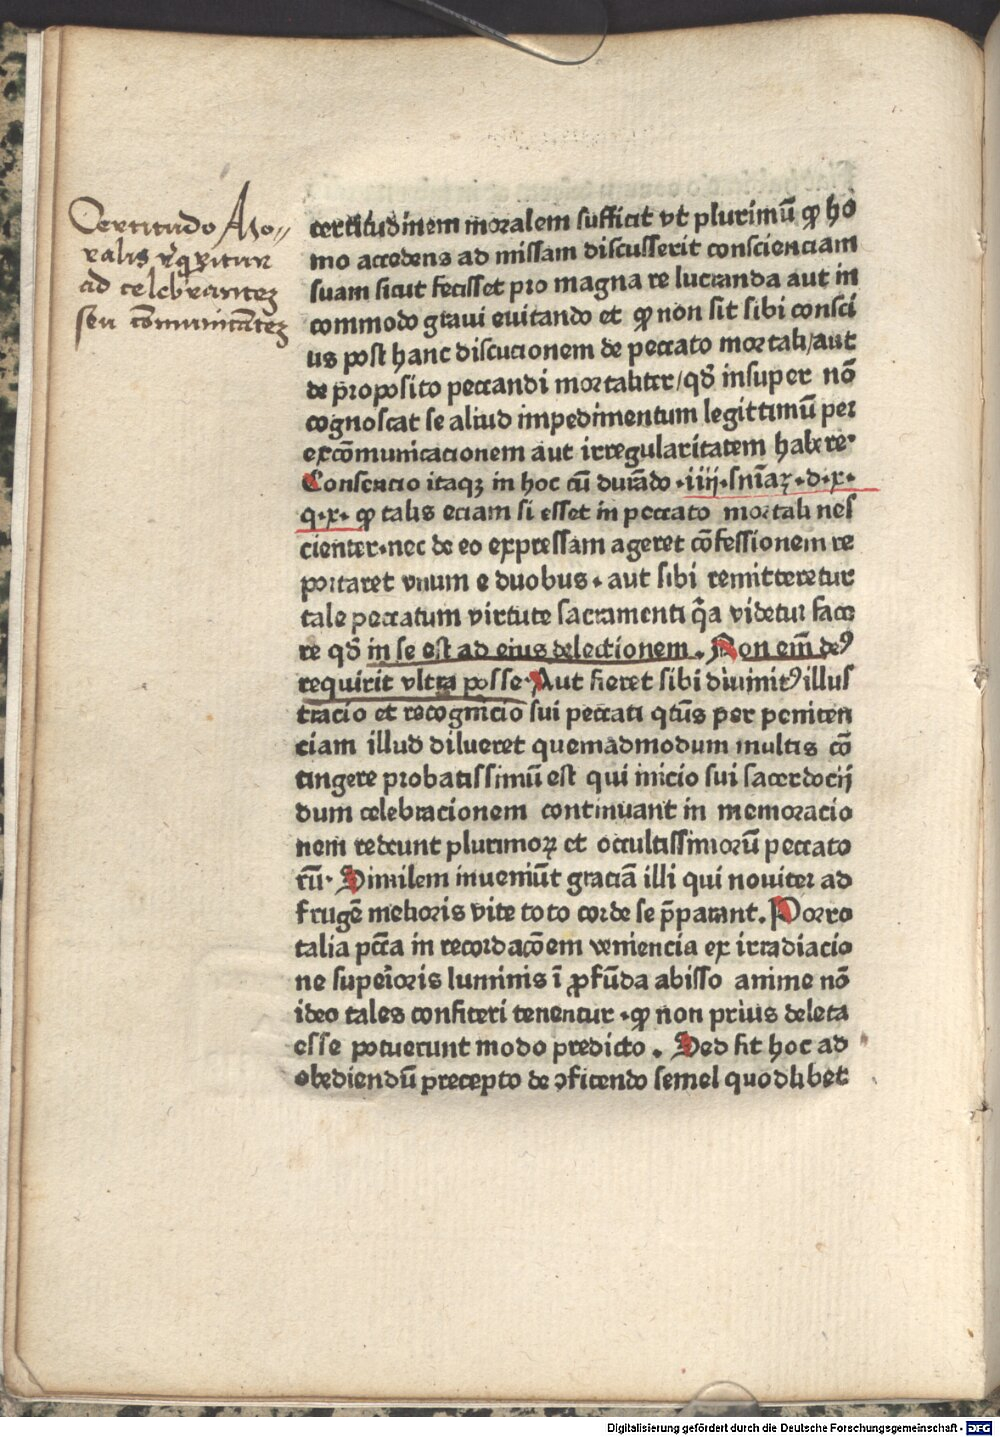 Certitudo Mo-
ralis req̄ritur
ad celebrantez
seu cōmunicātez
certitudinem moralem sufficit vt plurimū ꝙ ho
mo accedens ad missam discusserit conscienciam
suam sicut fecisset pro magna re lucranda aut in
commodo graui euitando et ꝙ non sit sibi consci
us post hanc discucionem de peccato mortali/aut
de proposito peccandi mortaliter/qđ insuper nō
cognoscat se aliud impedimentum legittimū per
excōmunicacionem aut irregularitatem habere·
Consencio itaqꝫ in hoc cū durādo ·iiij·sniaꝝ·d·x·
q·x· ꝙ talis eciam si esset in peccato mortali nes
cienter·nec de eo expressam ageret cōfessionem re
portaret vnum e duobus· aut sibi remitteretur
tale peccatum virtute sacramenti q̄a videtur face
re qđ in se est ad eius delectionem. Non em̄ deꝰ
requirit vltra posse· Aut fieret sibi diuinitꝰ illus
tracio et recognicio sui peccati qtūs per peniten
ciam illud dilueret quemadmodum multis cō
tingere probatissimū est qui inicio sui sacerdocij
dum celebracionem continuant in memoracio
nem redeunt plurimoꝝ et occultissimorū peccato
rū· Similem inueniūt graciā illi qui nouiter ad
frugē melioris vite toto corde se p̄parant. Porro
talia pctā in recordaçōem veniencia ex irradiacio
ne superioris luminis ī ꝓfūda abisso anime nō
ideo tales confiteri tenentur ·ꝙ non prius deleta
esse potuerunt modo predicto . Sed fit hoc ad
obediendū precepto de ꝯficendo semel quodlibet
Digitalisierung gefördert durch die Deutsche Forschungsgemeinschaft - DFG